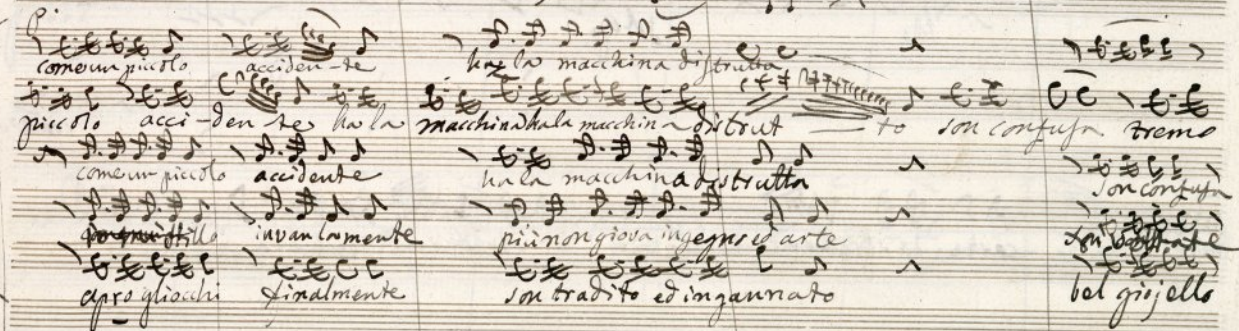 come un piccolo acciden-te ha la macchina distrutta
piccolo acci-den-te ha la macchina ha la macchina distrut — to son confusa tremo
come un piccolo accidente ha la macchina distrutta son confusa
invan la mente più non giova ingegno ed arte
apro gli occhi finalmente son tradito ed ingannato bel giojello